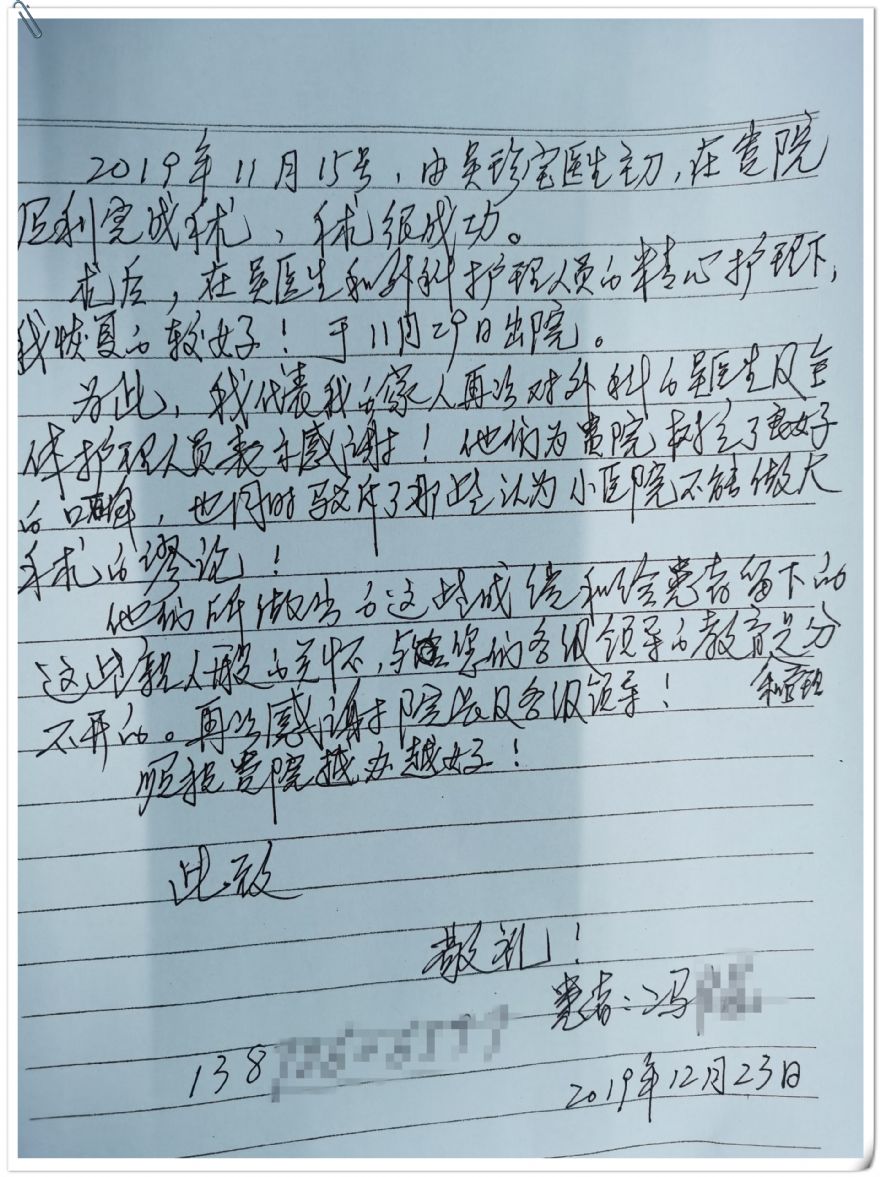 2019年11月15号，由吴珍宝医生主刀，在贵院
顺利完成手术，手术很成功。
术后，在吴医生和外科护理人员的精心护理下，
我恢复的较好！于11月29日出院。
为此，我代表我的家人再次对外科的吴医生及全
体护理人员表示感谢！他们为贵院树立了良好
的口碑，也同时驳斥了那些认为小医院不能做大
手术的谬论！
他们所做出的这些成绩和给患者留下的
这些亲人般的关怀，与您们各级领导的教育是分
和管理
不开的。再次感谢院长及各级领导！
顺祝贵院越办越好！
此致
敬礼！
患者：冯
138
2019年12月23日